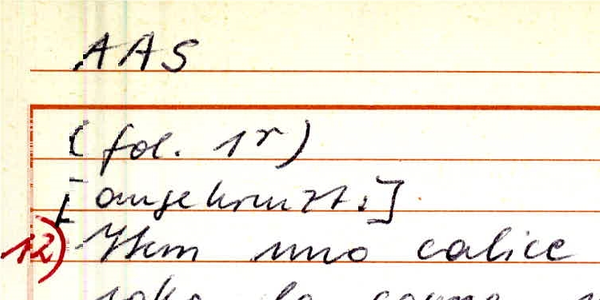 AAS
(fol. 1r)
[angekreuzt:]
12) Item uno calice